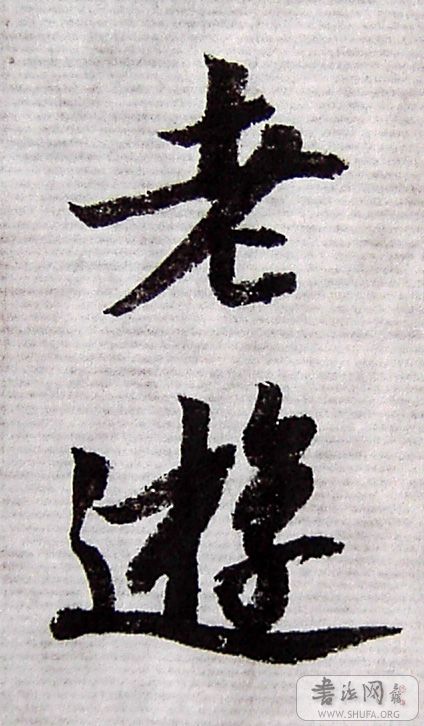 老遊
书法网
WWW.SHUFA.ORG